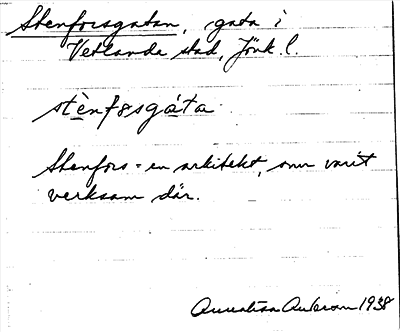 Stenforsgatan, gata i
Vetlanda stad, Jönk. l.
stènfɷsgáta
Stenfors = en arkitekt, som varit
verksam där.
1938